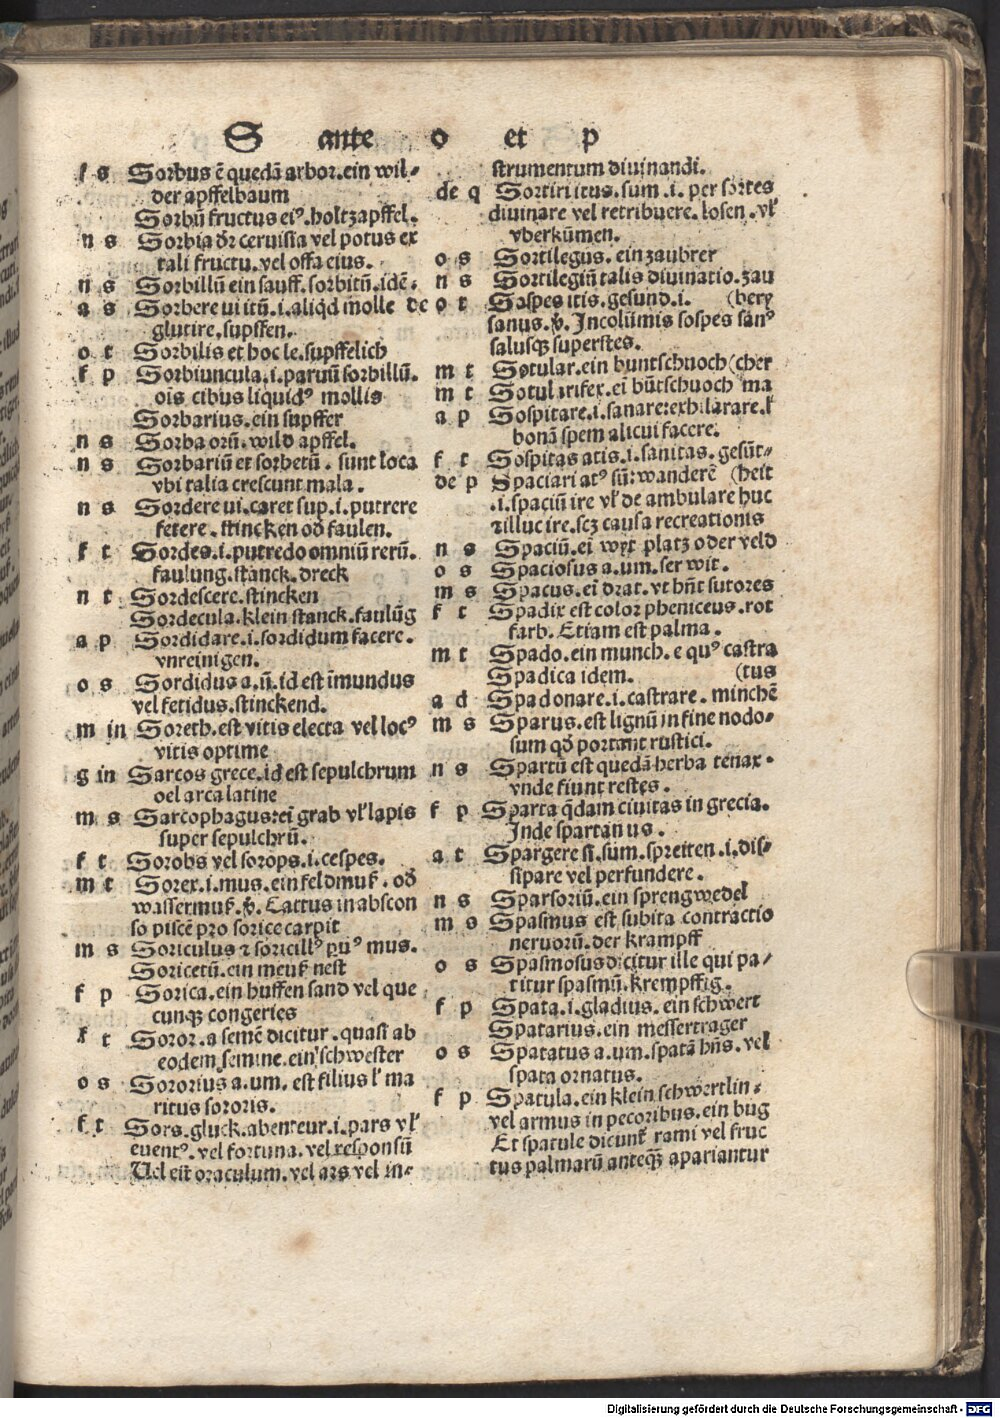 S ante o et p
f s Sorbus ē quedā arbor.ein wil-
der apffelbaum
Sorbū fructus eiꝰ.holtzapffel.
n s Sorbia dr ceruisia vel potus ex
tali fructu.vel offa eius.
n s Sorbillū ein sauff.sorbitū.idē.
a s Sorbere ui itū.i.aliqd molle de
glutire.supffen.
o t Sorbilis et hoc le.supffelich
f p Sorbiuncula.i.paruū sorbillū.
ois cibus liquidꝰ mollis
Sorbarius.ein supffer
n s Sorba orū.wild apffel.
n s Sorbariū et sorbetū. sunt loca
vbi talia crescunt mala.
n s Sordere ui.caret sup.i.putrere
fetere.stincken od faulen.
f t Sordes.i.putredo omniū rerū.
faulung.stanck.dreck
n t Sordescere.stincken
Sordecula.klein stanck.faulūg
a p Sordidare.i.sordidum facere.
vnreinigen.
o s Sordidus a.ū.id est īmundus
vel fetidus.stinckend.
m in Soreth.est vitis electa vel locꝰ
vitis optime
g in Sarcos grece.id est sepulchrum
oel arca latine
m s Sarcophagus:ei grab vl' lapis
super sepulchrū.
f t Sorobs vel sorops.i.cespes.
m t Sorex.i.mus.ein feldmuß.od
wassermuß.ꝟ. Cattus in abscon
so piscē pro sorice carpit
m s Soriculus ⁊ soricillꝰ pūꝰ mus.
Soricetū.ein meuß nest
f p Sorica.ein huffen sand vel que
cunqꝫ congeries
f t Soror.a semē dicitur.quasi ab
eodem semine.ein schwester
o s Sororius a.um.est filius l' ma
ritus sororis.
f t Sors.gluck.abenteur.i.pars vl'
euentꝰ.vel fortuna.vel responsū
Uel est oraculum.vel ars vel in-
strumentum diuinandi.
de q Sortiri itus.sum.i.per sortes
diuinare vel retribuere.losen.vl'
vberkūmen.
o s Sortilegus.ein zaubrer
n s Sortilegiū talis diuinatio.zau
o t Sospes itis.gesund.i. (bery
sanus.ꝟ.Incolūmis sospes sanꝰ
salusqꝫ superstes.
m t Sotular.ein buntschuoch (cher
m t Sotularifex.ei būtschuoch ma
a p Sospitare.i.sanare:exhilarare.l'
bonā spem alicui facere.
f t Sospitas atis.i.sanitas.gesūt-
de p Spaciari atꝰ sū:wanderē (heit
.i.spaciū ire vl' de ambulare huc
⁊ illuc ire.scꝫ causa recreationis
n s Spaciū.ei wyt platz oder veld
o s Spaciosus a.um.ser wit.
m s Spacus.ei drat.vt hn̄t sutores
f t Spadix est color pheniceus.rot
farb.Etiam est palma.
m t Spado.ein munch.equꝰ castra
Spadica idem. (tus
a d Spadonare.i.castrare.minchē
m s Sparus.est lignū in fine nodo-
sum qd portant rustici.
n s Spartū est quedā herba tenax.
vnde fiunt restes.
f p Sparta qdam ciuitas in grecia.
Inde spartanus.
a t Spargere si.sum.spreiten.i.dis-
sipare vel perfundere.
n s Sparsoriū.ein sprengwedel
m s Spasmus est subita contractio
neruorū.der krampff
o s Spasmosus dicitur ille qui pa-
titur spasmū.krempffig.
f p Spata.i.gladius.ein schwert
Spatarius.ein messertrager
o s Spatatus a.um.spatā hn̄s.vel
spata ornatus.
f p Spatula.ein klein schwertlin-
vel armus in pecoribus.ein bug
Et spatule dicunt' rami vel fruc
tus palmarū anteqꝫ apariantur
Digitalisierung gefördert durch die Deutsche Forschungsgemeinschaft - DFG